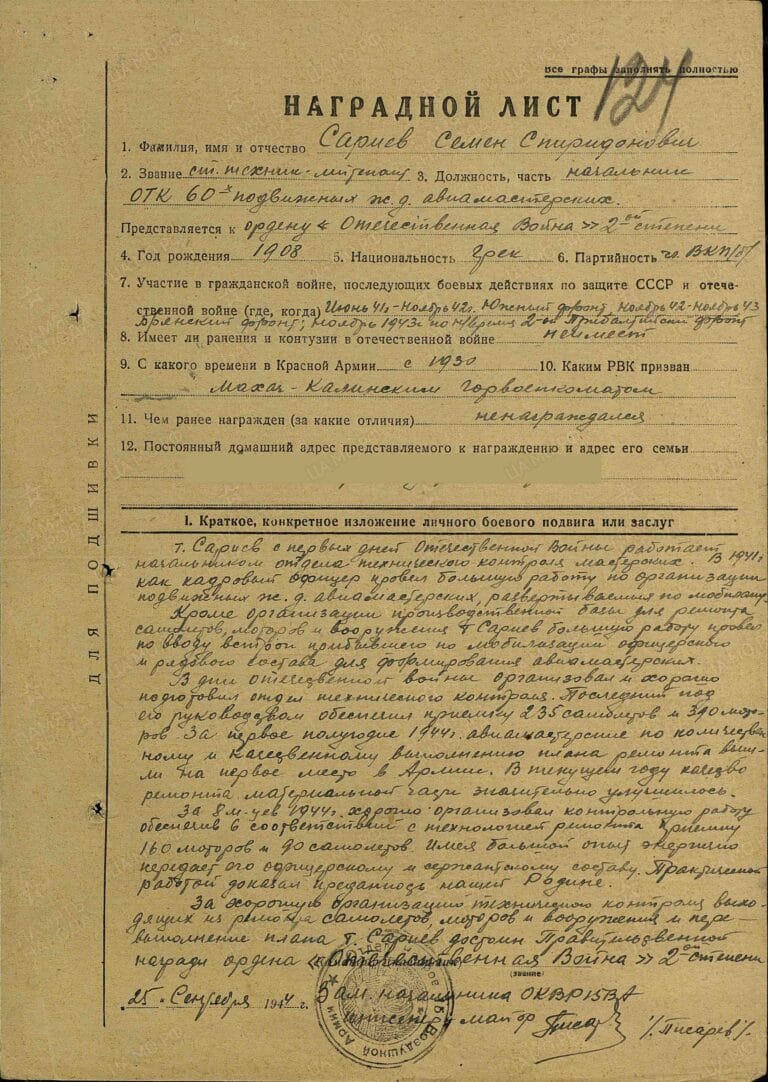 Все графы заполнять полностью
124
НАГРАДНОЙ ЛИСТ
1. Фамилия, имя и отчество Сариев Семен Спиридонович
2. Звание ст. техник-лейтенант 3. Должность, часть начальник
ОТК 60х подвижных ж.д. авиамастерских.
Представляется к ордену « Отечественная Война » 2-ой степени
4. Год рождения 1908 5. Национальность грек 6. Партийность чл. ВКП/б/
7. Участие в гражданской войне, последующих боевых действиях по защите СССР и отече-
ственной войне (где, когда) Июнь 41г-Ноябрь 42г. Южный фронт, Ноябрь 42-Ноябрь 43
Брянский фронт; Ноябрь 1943г по н/время 2-ой Прибалтийский фронт
8. Имеет ли ранения и контузии в отечественной войне не имеет
9. С какого времени в Красной Армии с 1930 10. Каким РВК призван
Махач-Калинским горвоенкоматом
11. Чем ранее награжден (за какие отличия) ненаграждался
12. Постоянный домашний адрес представляемого к награждению и адрес его семьи
ДЛЯ ПОДШИВКИ
I. Краткое, конкретное изложение личного боевого подвига или заслуг
т. Сариев с первых дней Отечественной Войны работает
начальником отдела технического контроля мастерских. В 1941г.
как кадровый офицер провел большую работу по организации
подвижных ж.д. авиамастерских, развертываемых по мобплану
Кроме организации производственной базы для ремонта
самолетов, моторов и вооружения т Сариев большую работу провел
по вводу в строй прибывшего по мобилизации офицерского
и рядового состава для формирования авиамастерских.
В дни отечественной войны организовал и хорошо
подготовил отдел технического контроля. Последний под
его руководством обеспечил приемку 235 самолетов и 390 мото-
ров За первое полугодие 1944г. авиамастерские по количествен-
ному и качественному выполнению плана ремонта выш-
ли на первое место в Армии. В текущем году качество
ремонта материальной части значительно улучшилось.
За 8 м-цев 1944г. хорошо организовал контрольную работу
обеспечив в соответствии с технологией ремонта приемку
160 моторов и 90 самолетов Имея большой опыт энергично
передает его офицерскому и сержантскому составу. Практической
работой доказал преданность нашей Родине.
За хорошую организацию технического контроля выхо-
дящих из ремонта самолетов, моторов и вооружения и пере-
выполнение плана т. Сариев достоин Правительственной
награды ордена « Отечественная Война » 2-ой степени
(звание)
25. Сентября 1944 г. Зам. начальника ОКВР 15ВА
инженер майор Писарев /Писарев/.
Воздушной Армии